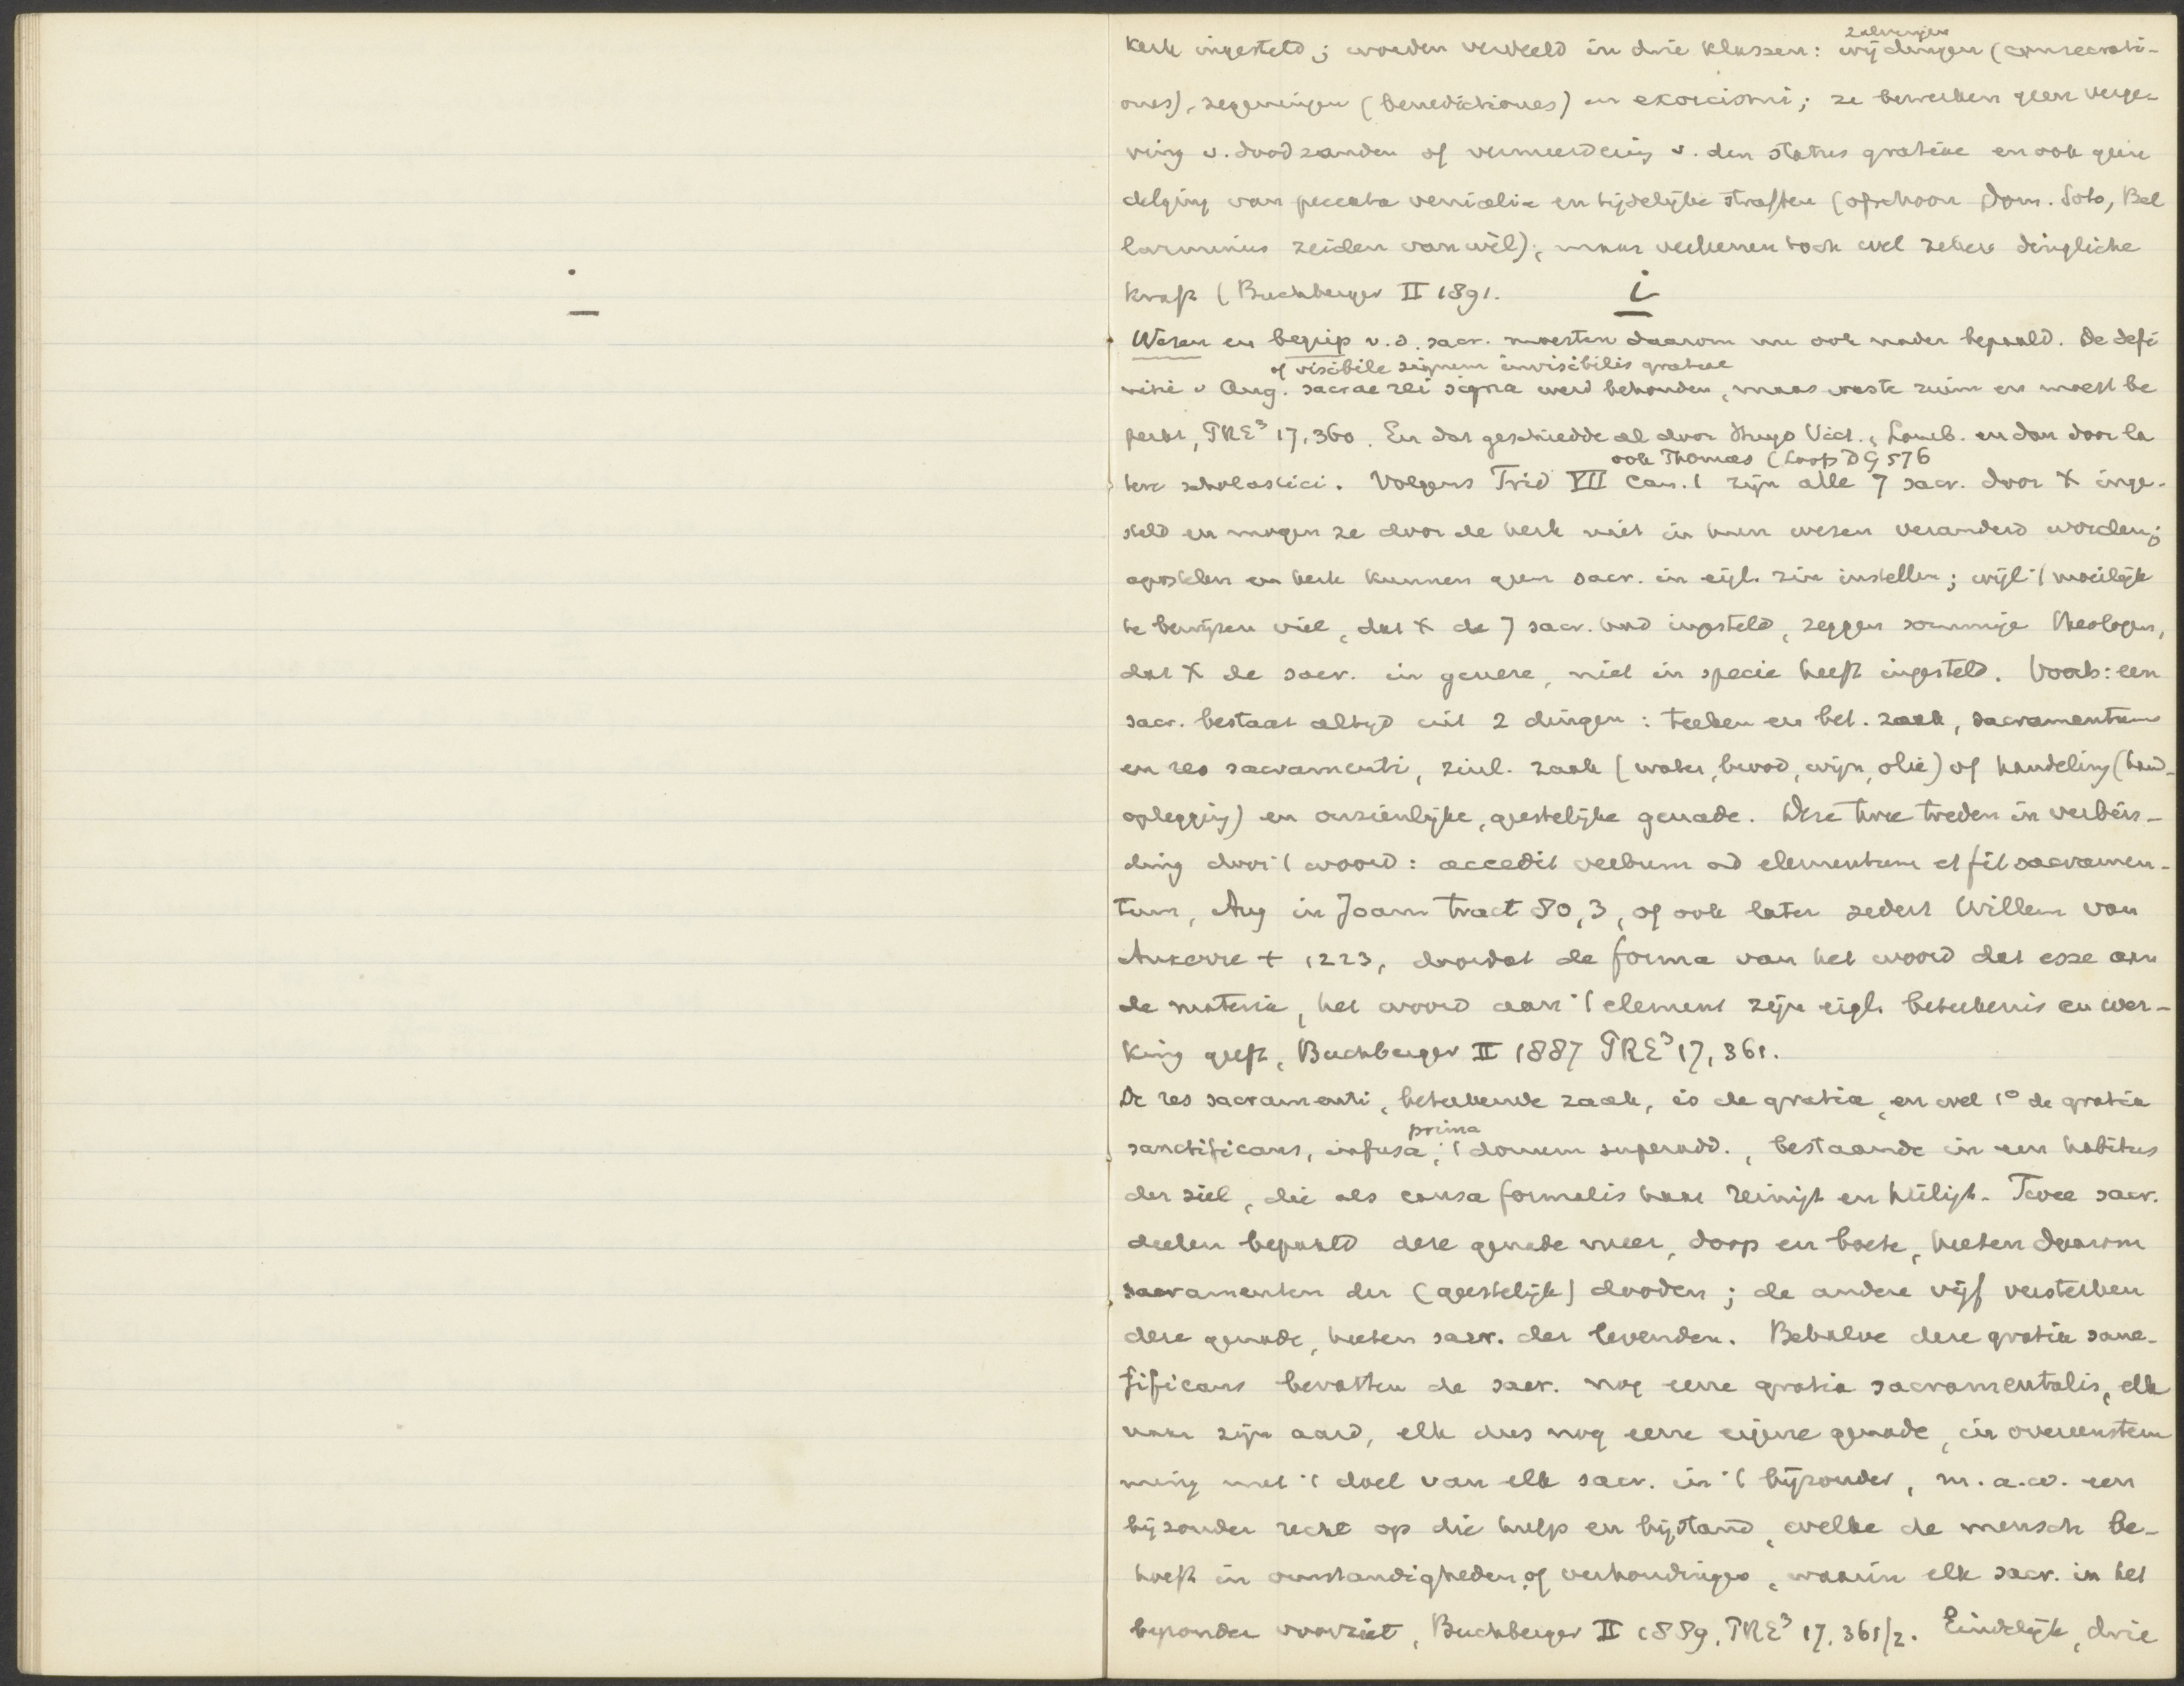 zalvingen
kerk ingesteld; worden verdeeld in drie klassen: wijdingen (consecrati-
ones), zegeningen (benedictiones) en exorcismi; ze bewerken geen verge-
ving v. doodzonden of vermeerdering v. den status gratiae en ook geen
delging van peccata venialia en tijdelijke straffen (ofschoon Dom. Soto, Bel
larminus zeiden van wèl), maar verleenen toch wel zekere dingliche
kraft (Buchberger II 1891. i
Wezen en begrip v.d. sacr. moesten daarom nu ook nader bepaald. De defi
of visibile signum invisibilis gratiae
nitie v Aug. sacrae rei signa werd behouden, maar was te ruim en moest be
perkt, PRE³ 17,360. En dat geschiedde al door Hugo Vict., Lomb. en dan door la
ook Thomas (Loofs DG 576
tere scholastici. Volgens Trid VII Can. 1 zijn alle 7 sacr. door X inge-
steld en mogen ze door de kerk niet in hun wezen veranderd worden;
apostelen en kerk kunnen geen sacr. in eigl. zin instellen; wijl 't moeilijk
te bewijzen viel, dat X de 7 sacr. had ingesteld, zeggen sommige theologen,
dat X de sacr. in genere, niet in specie heeft ingesteld. Voorts: een
sacr. bestaat altijd uit 2 dingen: teeken en bet. zaak, sacramentum
en res sacramenti, zinl. zaak (water, brood, wijn, olie) of handeling (hand-
oplegging) en onzienlijke, geestelijke genade. Deze twee treden in verbin-
ding door 't woord: accedit verbum ad elementum et fit sacramen-
tum, Aug in Joann tract 80,3, of ook later sedert Willem van
Auxerre + 1223, doordat de forma van het woord dat esse aan
de materia, het woord aan 't element zijn eigl. beteekenis en wer-
king geeft, Buchberger II 1887 PRE³ 17,361.
De res sacramenti, beteekende zaak, is de gratia, en wel 1° de gratia
prima
sanctificans, infusa, 't donum superadd., bestaande in een habitus
der ziel, die als causa formalis haar reinigt en heiligt. Twee sacr.
deelen bepaald deze genade mee, doop en boete, heeten daarom
sacramenten der (geestelijk) dooden; de andere vijf versterken
deze genade, heeten sacr. der levenden. Behalve deze gratia sanc-
tificans bevatten de sacr. nog eene gratia sacramentalis, elk
naar zijn aard, elk dus nog eene eigene genade, in overeenstem
ming met 't doel van elk sacr. in 't bijzonder, m.a.w. een
bijzonder recht op die hulp en bijstand, welke de mensch be-
hoeft in omstandigheden of verhoudingen, waarin elk sacr. in het
bijzonder voorziet, Buchberger II 1889, PRE³ 17,361/2. Eindelijk, drie